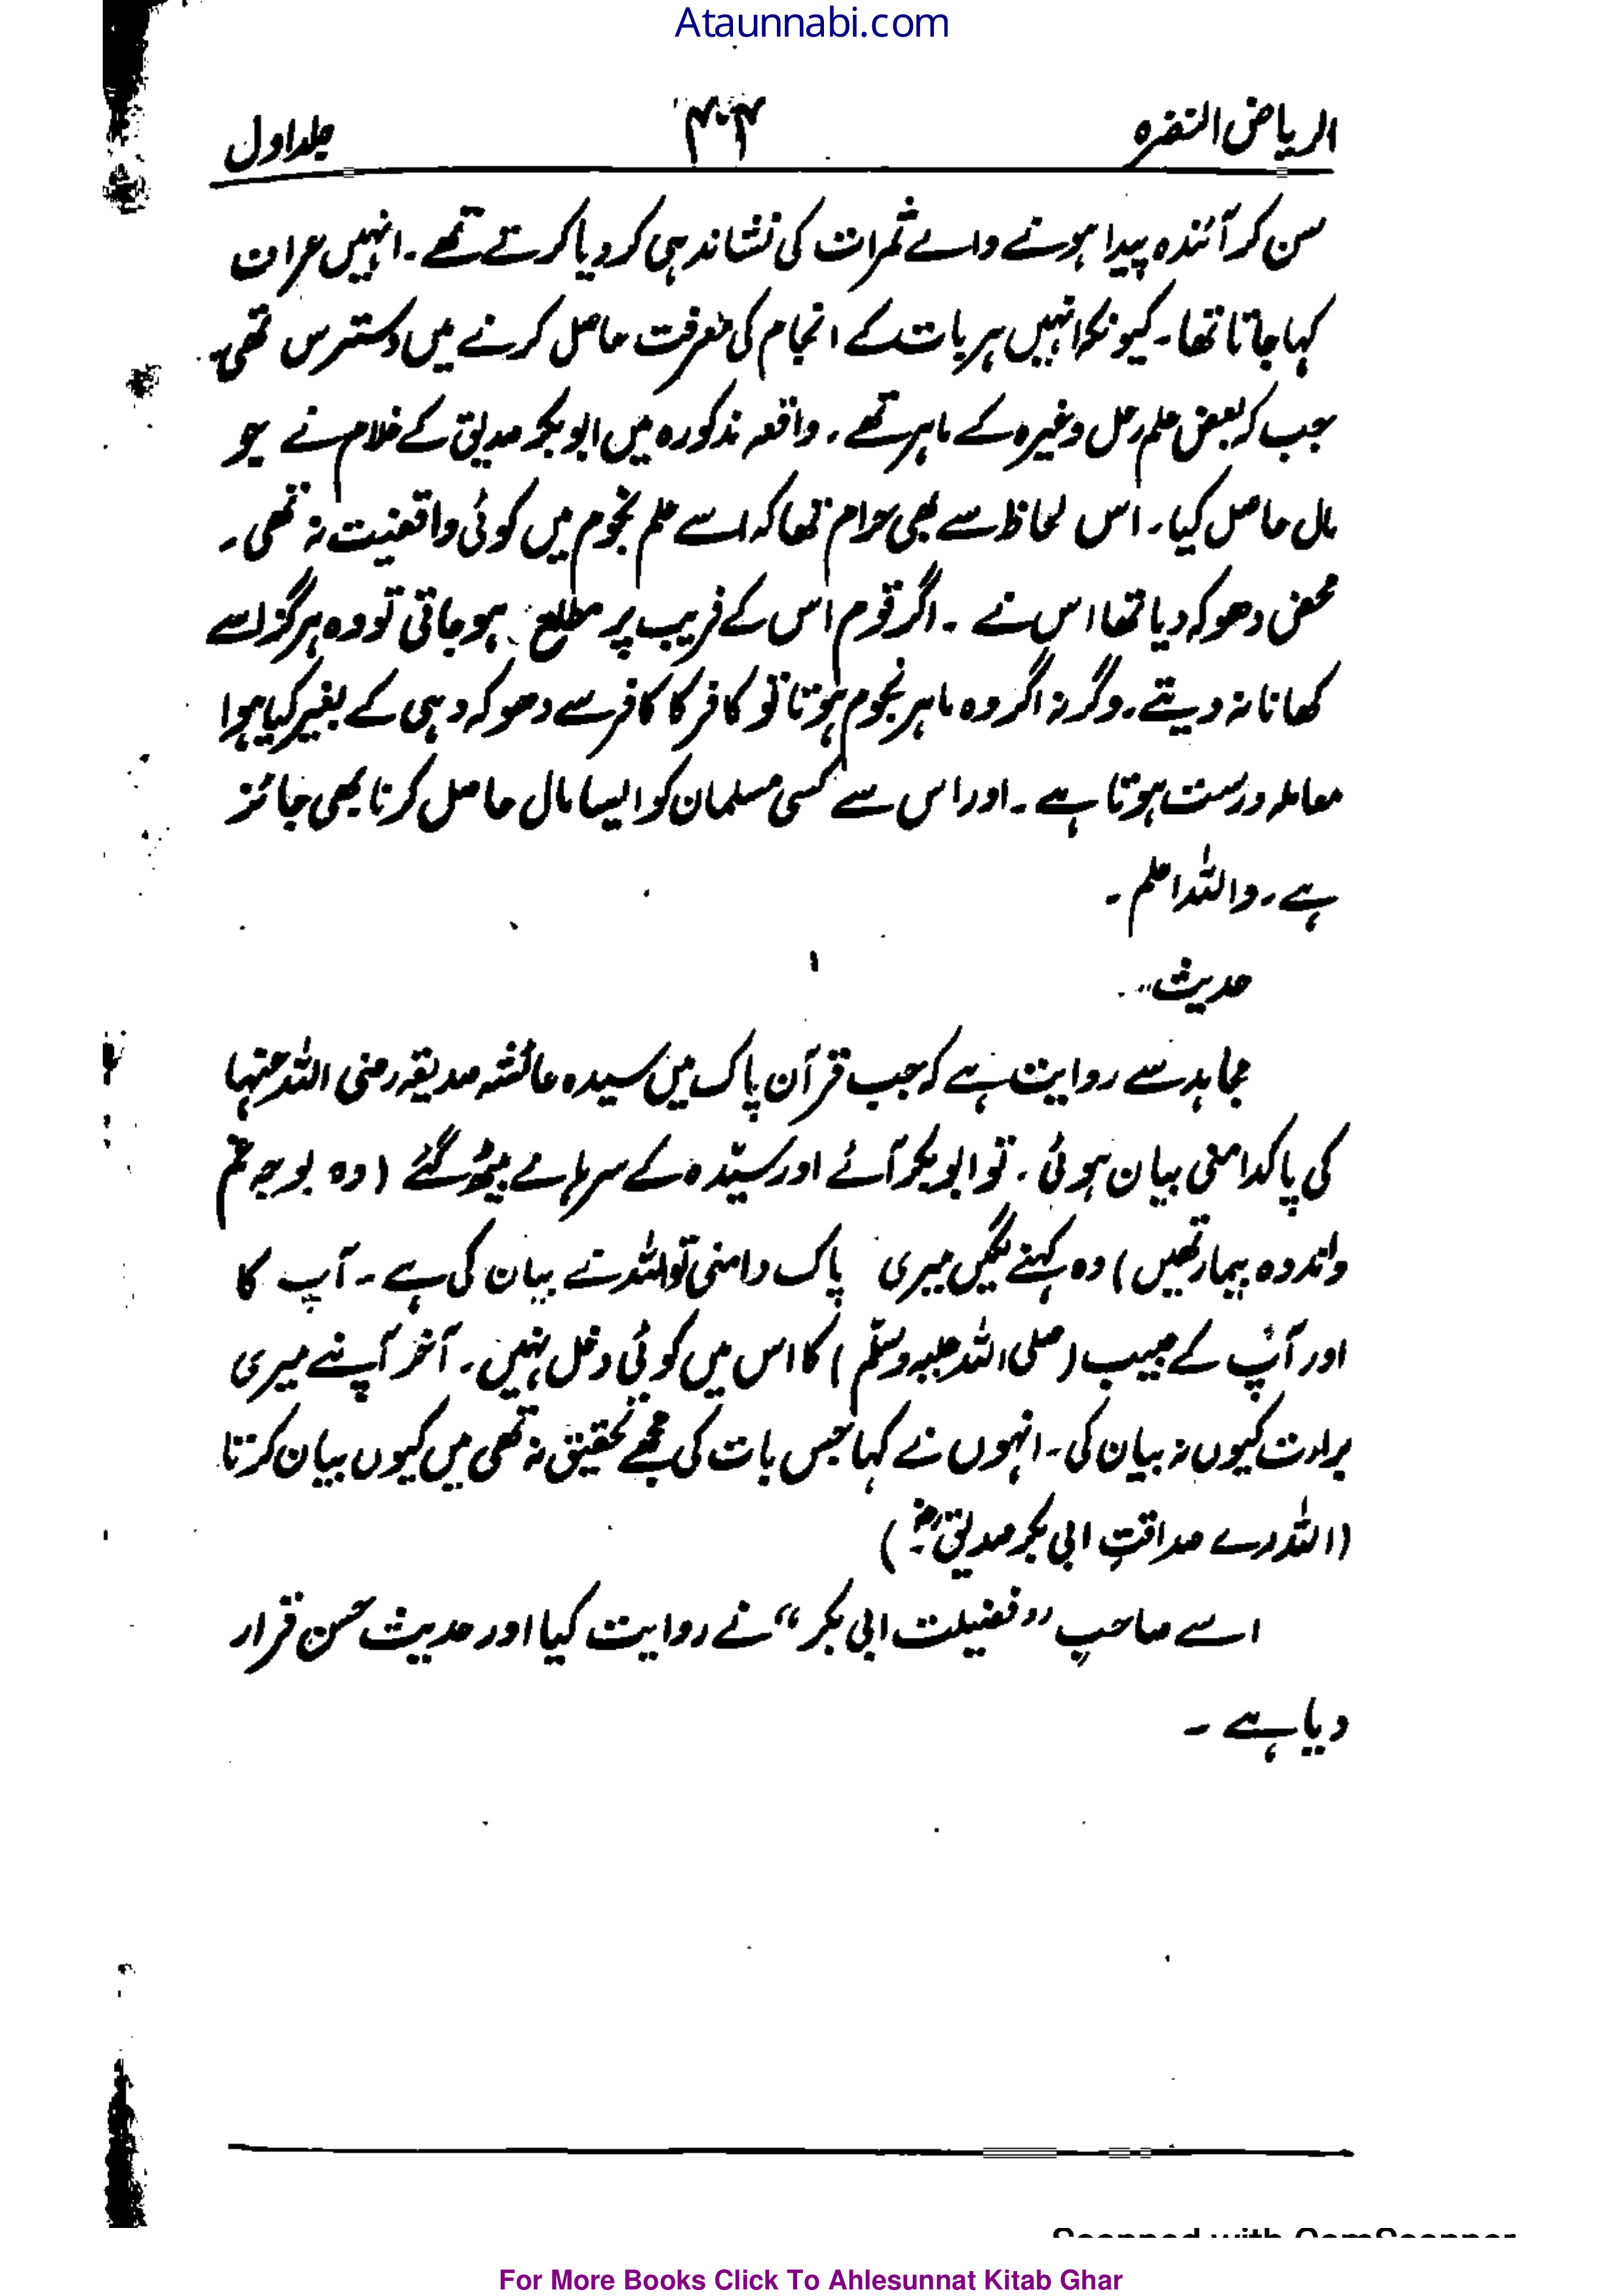 Ataunnabi.com
الریاض النضرہ ۴۰۴ جلد اول
سن کر آئندہ پیدا ہونے والے ثمرات کی نشاندہی کر دیا کرتے تھے۔ انہیں عراف
کہا جاتا تھا۔ کیونکہ انہیں ہر بات کے انجام کی معرفت حاصل کرنے میں دسترس تھی۔
جب کہ بعض علم رمل وغیرہ کے ماہر تھے۔ واقعہ مذکورہ میں ابوبکر صدیق کے غلام نے جو
مال حاصل کیا۔ اس لحاظ سے بھی حرام تھا کہ اسے علم نجوم میں کوئی واقفیت نہ تھی۔
محض دھوکہ دیا تھا اس نے ۔ اگر قوم اس کے فریب پر مطلع ہو جاتی تو وہ ہرگز اسے
کھانا نہ دیتے۔ وگرنہ اگر وہ ماہر نجوم ہوتا تو کافر کا کافر سے دھوکہ دہی کے بغیر کیا ہوا
معاملہ درست ہوتا ہے۔ اور اس سے کسی مسلمان کو ایسا مال حاصل کرنا بھی جائز
ہے۔ واللہ اعلم ۔
حدیث ۔
مجاہد سے روایت ہے کہ جب قرآن پاک میں سیدہ عائشہ صدیقہ رضی اللہ عنہا
کی پاکدامنی بیان ہوئی۔ تو ابوبکر آئے اور سیّدہ کے سرہانے بیٹھ گئے (وہ بوجہ غم
واندوہ بیمار تھیں) وہ کہنے لگیں میری پاک دامنی تو اللہ نے بیان کی ہے۔ آپ کا
اور آپ کے حبیب (صلی اللہ علیہ وسلّم) کا اس میں کوئی دخل نہیں۔ آخر آپ نے میری
براءت کیوں نہ بیان کی۔ انہوں نے کہا جس بات کی مجھے تحقیق نہ تھی میں کیوں بیان کرتا
(اللہ رے صداقتِ ابی بکر صدیقؓ)
اسے صاحبِ ”فضیلت ابی بکر“ نے روایت کیا اور حدیث حسن قرار
دیا ہے ۔
Scanned with CamScanner
For More Books Click To Ahlesunnat Kitab Ghar